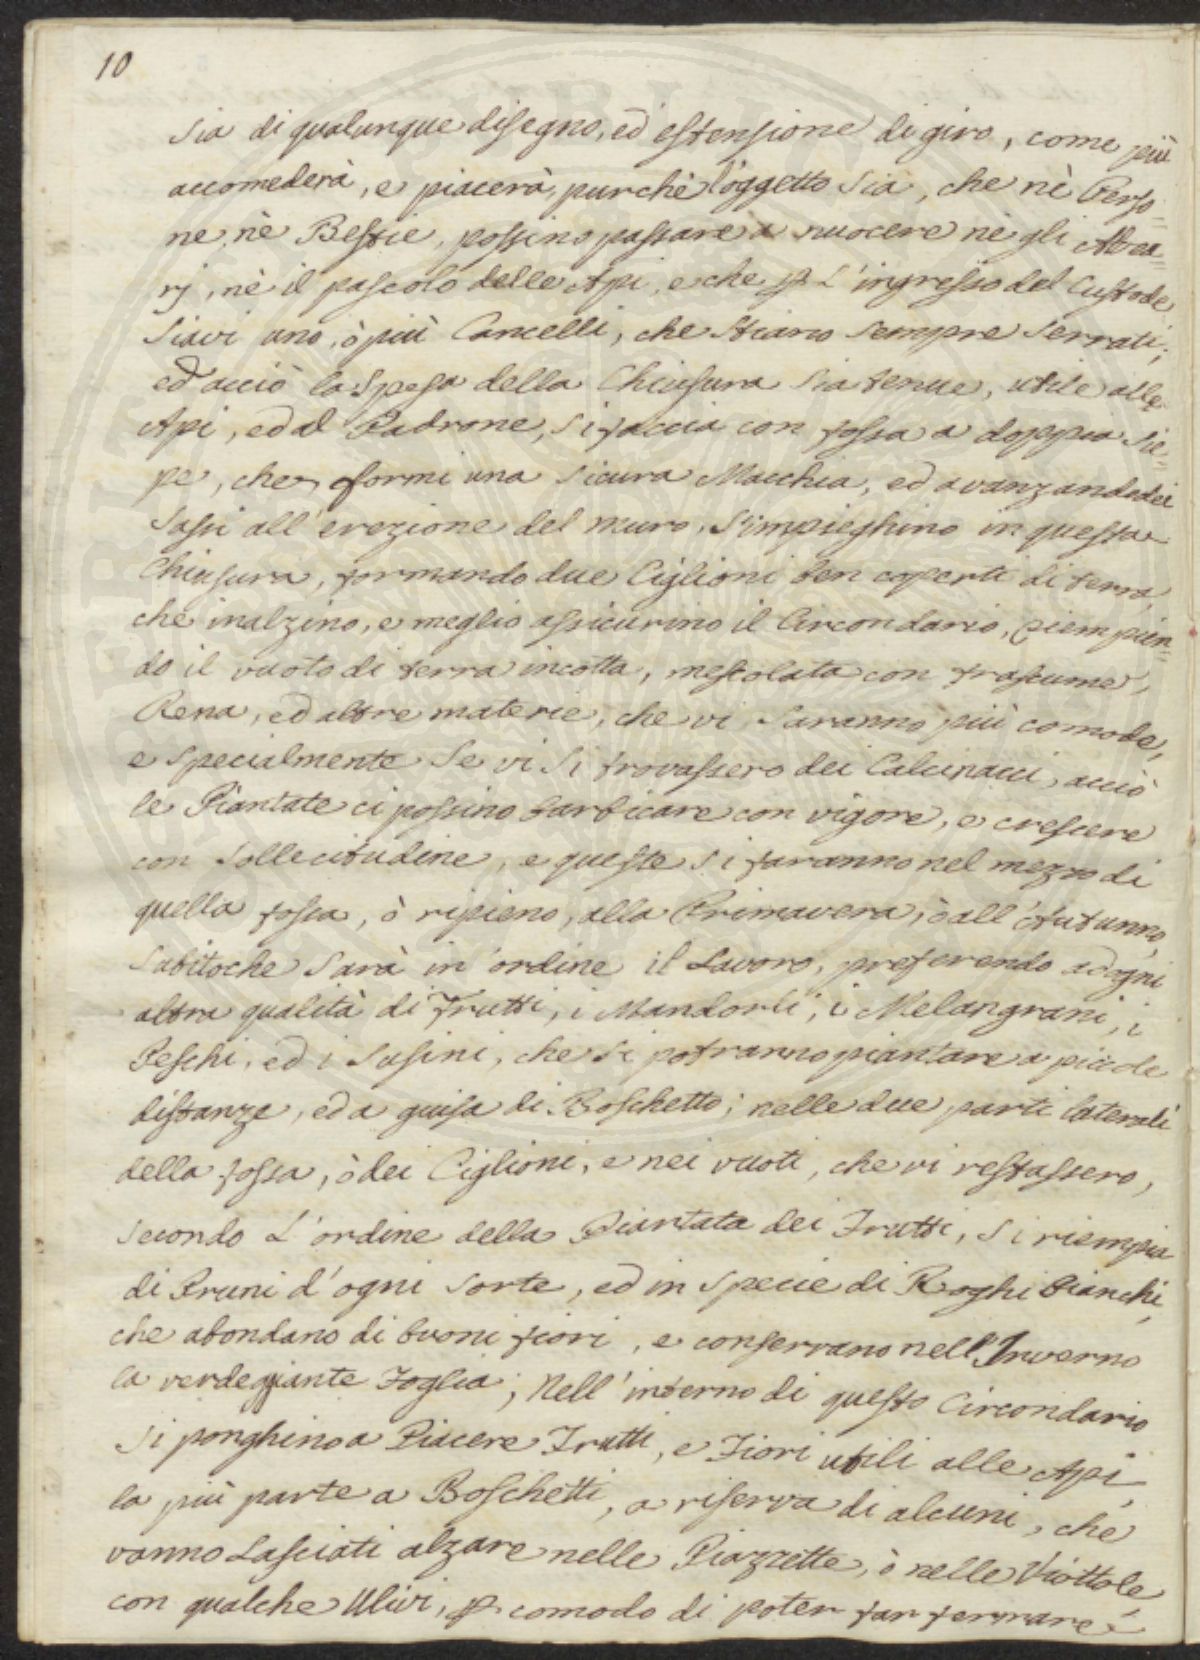 10
sia di qualunque disegno, ed estensione di giro, come più
accomederà, e piacerà, purchè l'oggetto sia, che nè Perso=
ne, nè Bestie, possino passare a nuocere nè gli Alvea=
rj, nè il pascolo delle Api, e che p. L'ingresso del Custode
siavi uno, ò più Cancelli, che stiano sempre serrati;
ed acciò la spesa della Chiusura sia tenue, utile alle
Api, ed al Padrone, si faccia con fossa a doppia sie=
pe, che formi una sicura Macchia, ed avanzando dei
sassi all'erezione del muro, s'impieghino in questa
Chiusura, formando due Ciglioni ben coperti di terra,
che inalzino, e meglio assicurino il Circondario, riempien=
do il vuoto di terra incotta, mescolata con frascume,
Rena, ed altre materie, che vi saranno più comode,
e specialmente se vi si trovassero dei Calcinacci, acciò
le Piantate ci possino barbicare con vigore, e crescere
con sollecitudine, e queste si faranno nel mezzo di
quella fossa, ò ripieno, alla Primavera, ò all'Autunno,
subitoche sarà in ordine il Lavoro, preferendo ad ogni
altra qualità di Frutti, i Mandorli, i Melangrani, i
Peschi, ed i Susini, che si potranno piantare a piccole
distanze, ed a guisa di Boschetto; nelle due parti laterali
della fossa, ò dei Ciglioni, e nei vuoti, che vi restassero,
secondo L'ordine della Piantata dei Frutti, si riempia
di Pruni d'ogni sorte, ed in specie di Roghi bianchi,
che abondano di buoni fiori, e conservano nell'Inverno
la verdeggiante Foglia; Nell'interno di questo Circondario
si ponghino a Piacere Frutti, e Fiori utili alle Api,
la più parte a Boschetti, a riserva di alcuni, che
vanno Lasciati alzare nelle Piazzette, ò nelle Viottole
con qualche Ulivi, p. comodo di poter far fermare